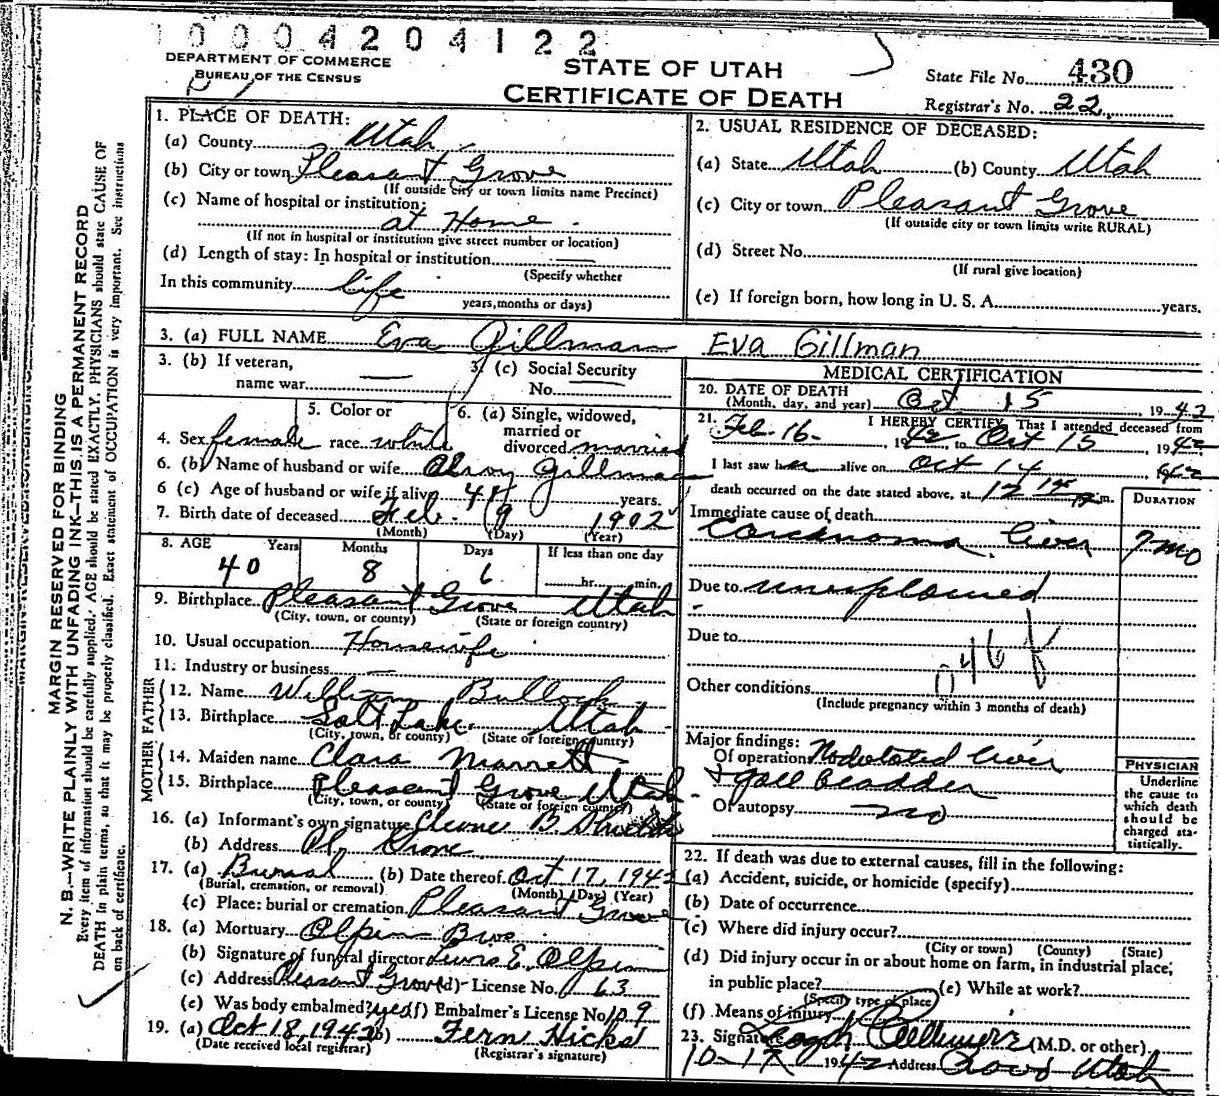 1 0 0 0 4 2 0 4 1 2 2
DEPARTMENT OF COMMERCE
BUREAU OF THE CENSUS
STATE OF UTAH
CERTIFICATE OF DEATH
State File No. 430
Registrar's No. 22
MARGIN RESERVED FOR BINDING
N. B.—WRITE PLAINLY WITH UNFADING INK—THIS IS A PERMANENT RECORD
Every item of information should be carefully supplied. AGE should be stated EXACTLY. PHYSICIANS should state CAUSE OF
DEATH in plain terms, so that it may be properly classified. Exact statement of OCCUPATION is very important. See instructions
on back of certificate.
1. PLACE OF DEATH:
(a) County Utah
(b) City or town Pleasant Grove
(If outside city or town limits name Precinct)
(c) Name of hospital or institution:
at Home
(If not in hospital or institution give street number or location)
(d) Length of stay: In hospital or institution —
(Specify whether
In this community life
years, months or days)
2. USUAL RESIDENCE OF DECEASED:
(a) State Utah (b) County Utah
(c) City or town Pleasant Grove
(If outside city or town limits write RURAL)
(d) Street No.
(If rural give location)
(e) If foreign born, how long in U. S. A. years.
3. (a) FULL NAME Eva Gillman Eva Gillman
3. (b) If veteran,
name war —
3. (c) Social Security
No. —
4. Sex female
5. Color or
race white
6. (a) Single, widowed,
married or
divorced married
6. (b) Name of husband or wife Gillman
6 (c) Age of husband or wife if alive years.
7. Birth date of deceased Feb. 9 1902
(Month) (Day) (Year)
8. AGE Years Months Days If less than one day
40 8 6 hr. min.
9. Birthplace Pleasant Grove Utah
(City, town, or county) (State or foreign country)
10. Usual occupation Housewife
11. Industry or business —
FATHER
12. Name William Bullock
13. Birthplace Salt Lake Utah
(City, town, or county) (State or foreign country)
MOTHER
14. Maiden name Clara Marrott
15. Birthplace Pleasant Grove Utah
(City, town, or county) (State or foreign country)
16. (a) Informant's own signature B.
(b) Address Pl. Grove
17. (a) Burial (b) Date thereof Oct 17, 1942
(Burial, cremation, or removal) (Month) (Day) (Year)
(c) Place: burial or cremation Pleasant Grove
18. (a) Mortuary Olpin Bros
(b) Signature of funeral director Lewis E. Olpin
(c) Address Pleasant Grove (d) License No. 63
(e) Was body embalmed? yes (f) Embalmer's License No. 109
19. (a) Oct 18, 1942 (b) Fern Hicks
(Date received local registrar) (Registrar's signature)
MEDICAL CERTIFICATION
20. DATE OF DEATH
(Month, day, and year) Oct 15, 1942
21. I HEREBY CERTIFY, That I attended deceased from
Feb. 16, 1942, to Oct 15, 1942
I last saw her alive on Oct 14 1942
death occurred on the date stated above, at 12 m.
DURATION
Immediate cause of death
Carcinoma liver 7 mo
Due to unexplained
Due to
046 f
Other conditions
(Include pregnancy within 3 months of death)
Major findings:
Of operation Nodulated liver
& gall bladder
Of autopsy no
PHYSICIAN
Underline
the cause to
which death
should be
charged sta-
tistically.
22. If death was due to external causes, fill in the following:
(a) Accident, suicide, or homicide (specify)
(b) Date of occurrence
(c) Where did injury occur?
(City or town) (County) (State)
(d) Did injury occur in or about home on farm, in industrial place,
in public place? (e) While at work?
(Specify type of place)
(f) Means of injury
23. Signature (M.D. or other)
10-17 1942 Address Provo Utah